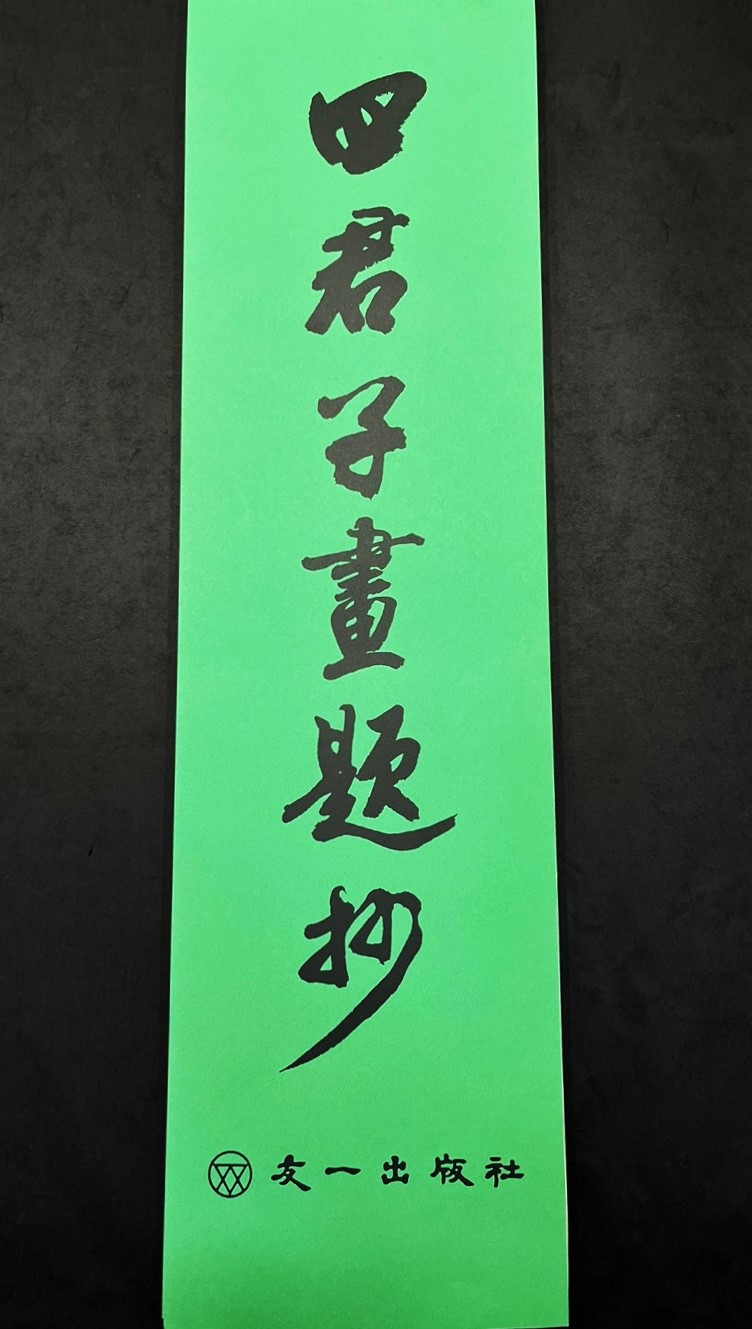 四君子畫題抄
友一出版社